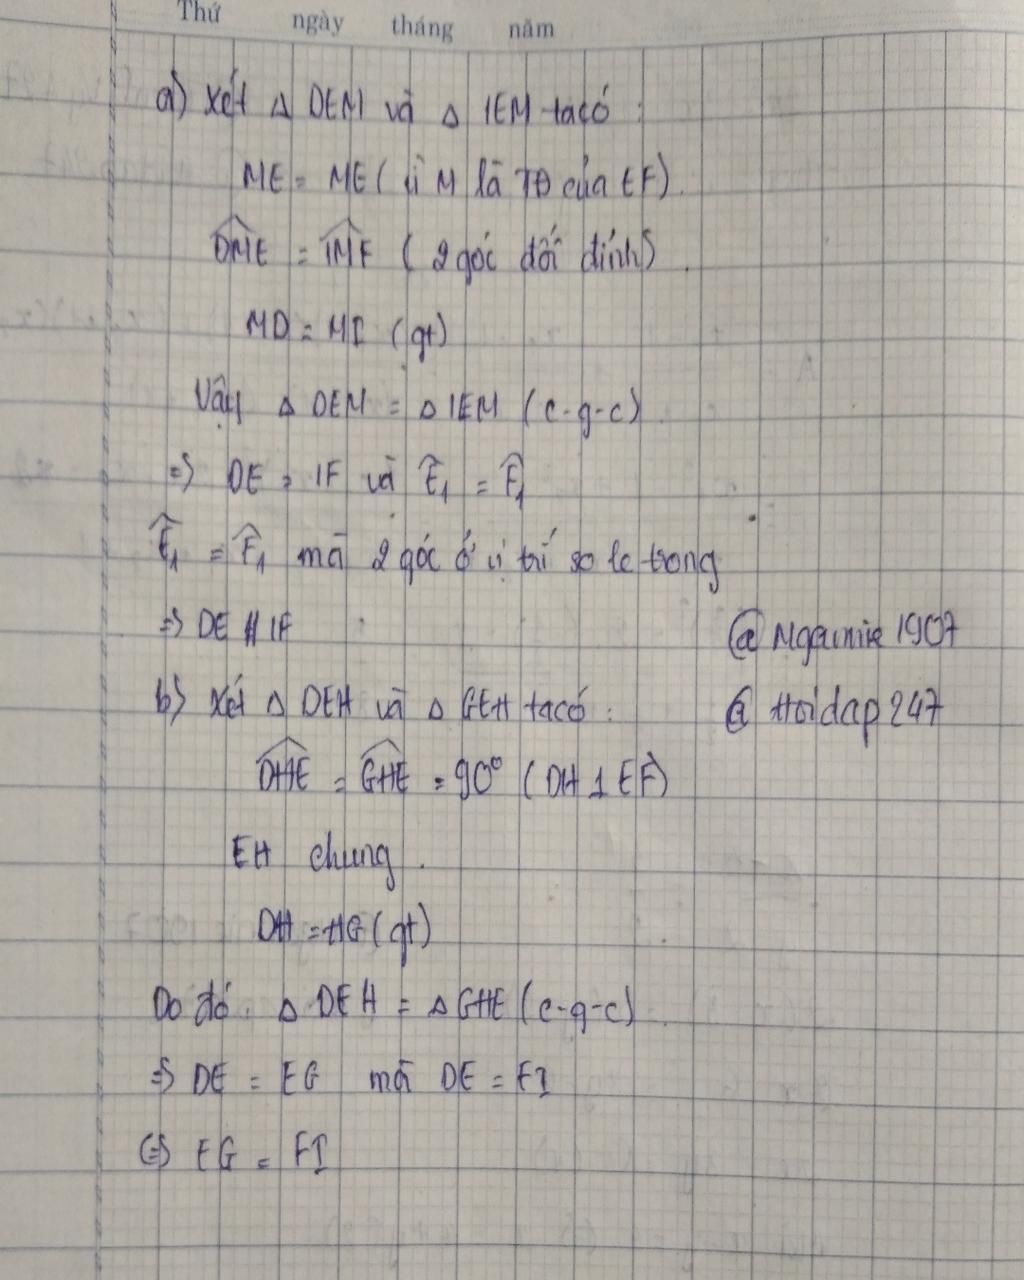 Thứ ngày tháng năm
a) Xét Δ DEM và Δ IEM ta có :
ME = ME ( vì M là TĐ của EF).
DME = IMF ( 2 góc đối đỉnh).
MD = MI (gt)
Vậy Δ DEM = Δ IEM (c-g-c).
=> DE = IF và Ê₁ = F̂₁
Ê₁ = F̂₁ mà 2 góc ở vị trí so le trong
=> DE // IF
@ Ngaymie 1907
b) Xét Δ DEH và Δ GEH ta có :
@ Hoidap 247
DHE = GHE = 90° ( DH ⊥ EF)
EH chung.
DH = HG (gt)
Do đó. Δ DEH = Δ GHE (c-g-c).
=> DE = EG mà DE = FI
<=> EG = FI